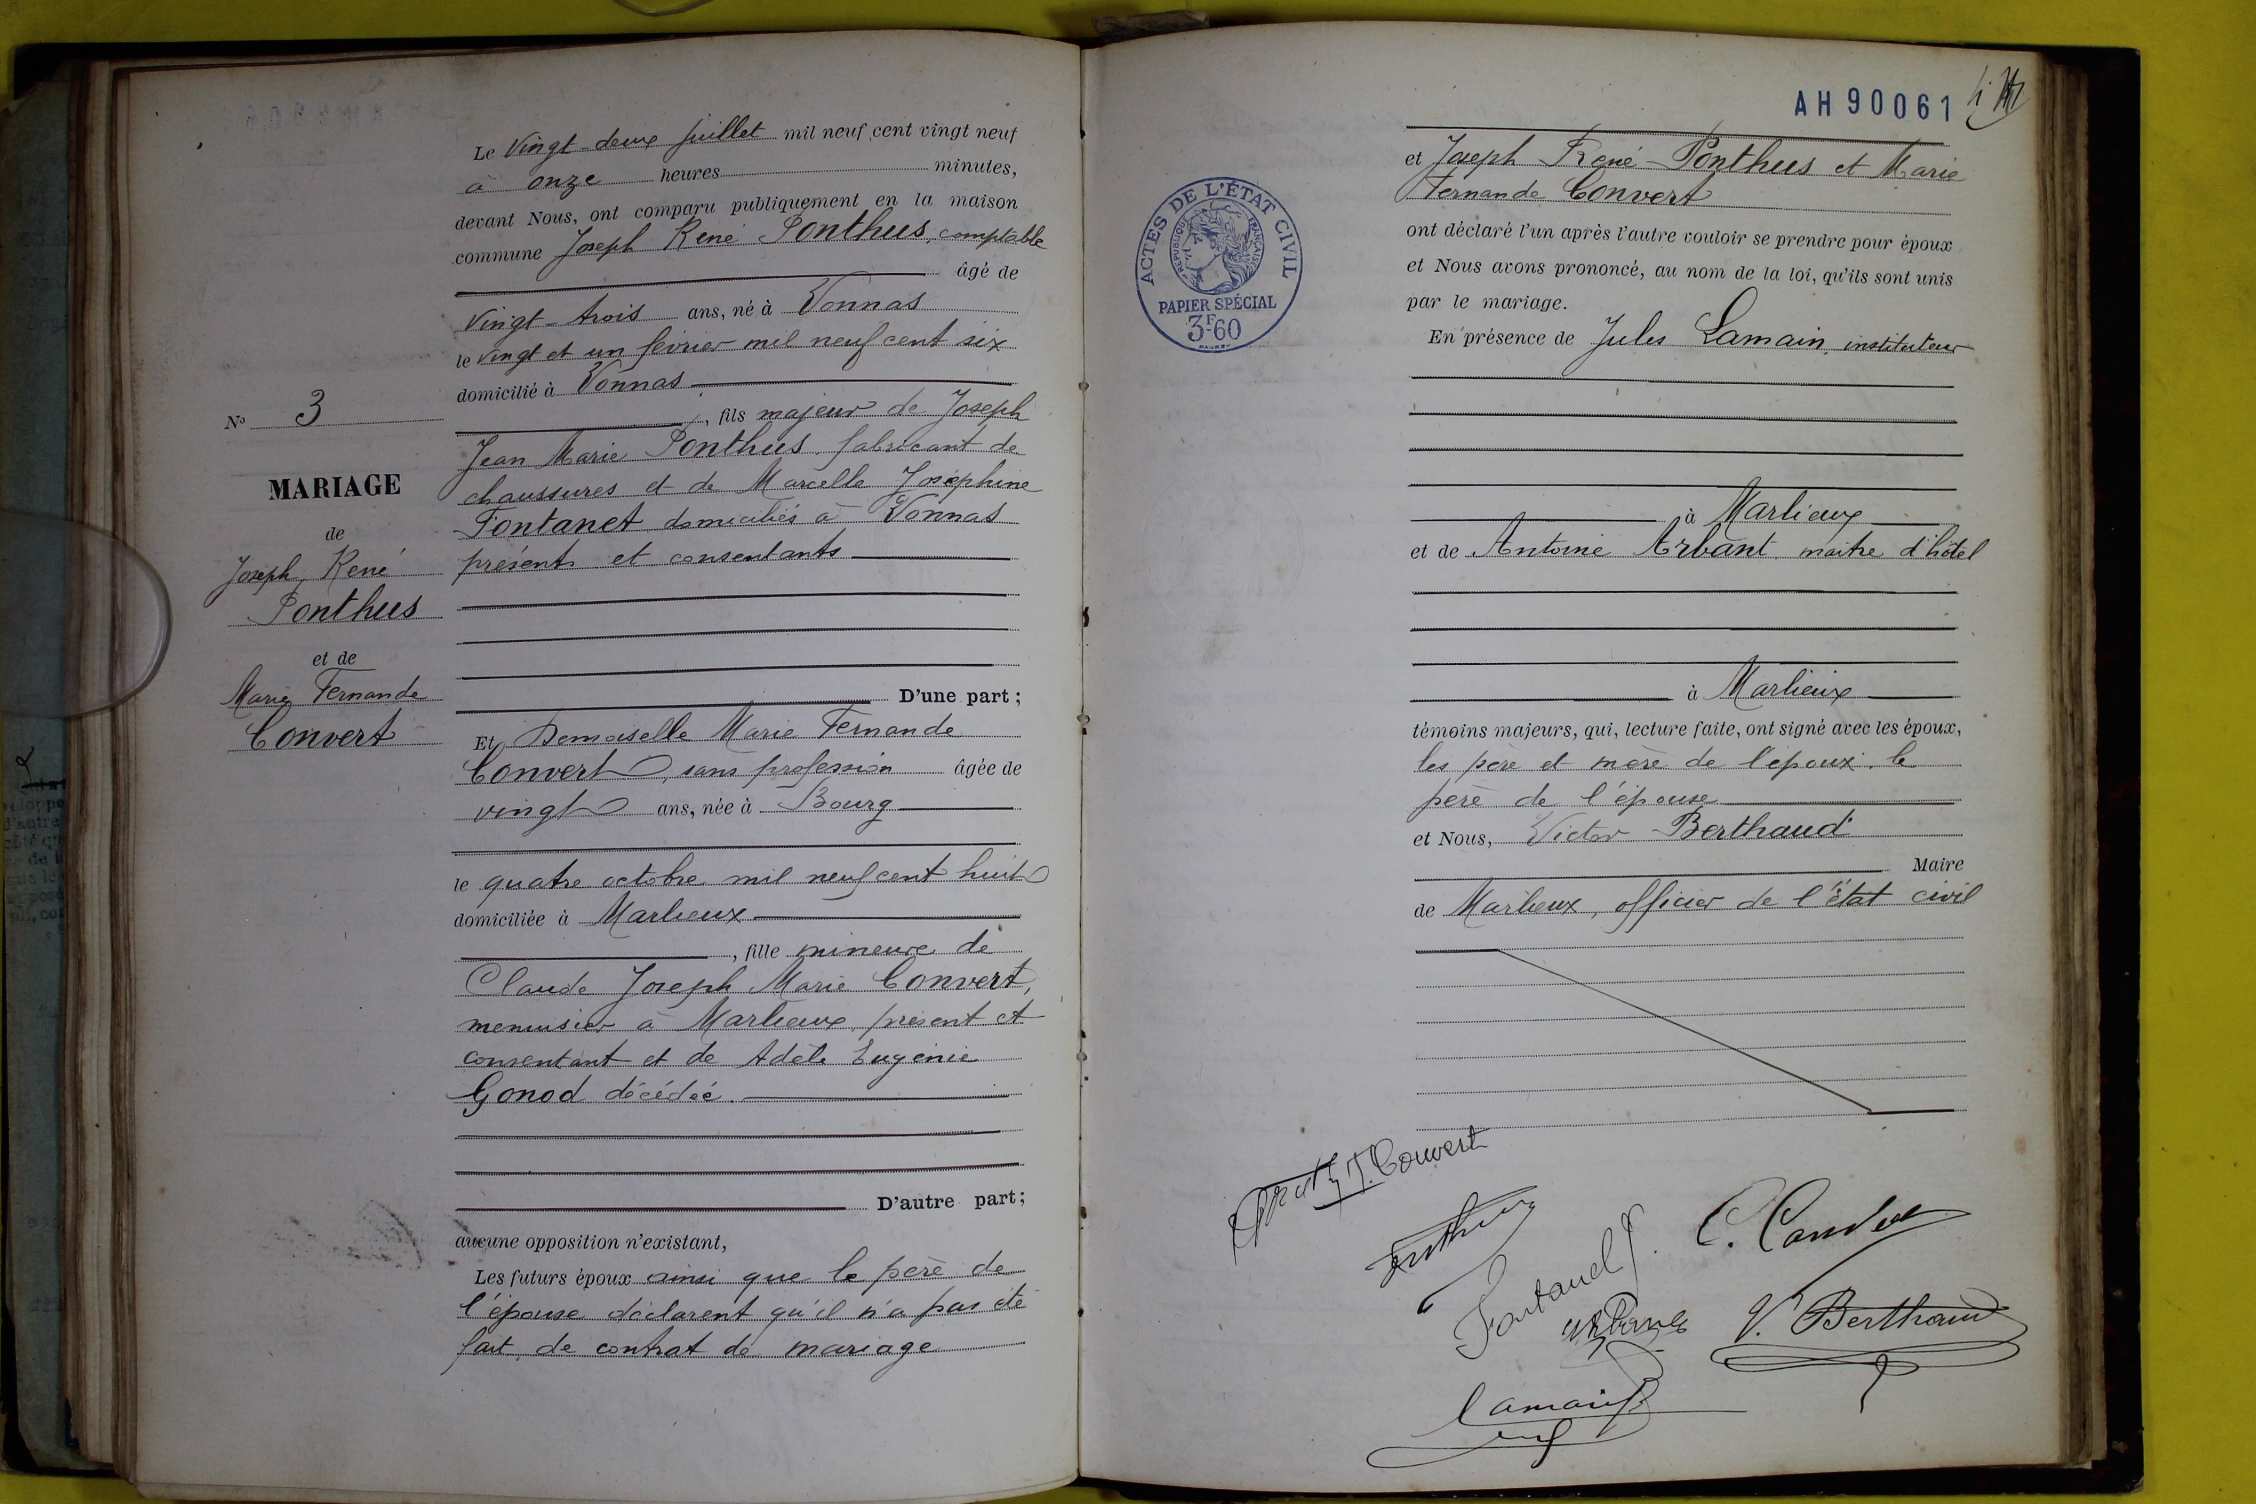 Le vingt-deux juillet mil neuf cent vingt neuf
à onze heures minutes,
devant Nous, ont comparu publiquement en la maison
commune Joseph René Ponthus, comptable
âgé de
vingt-trois ans, né à Vonnas
le vingt et un février mil neuf cent six
domicilié à Vonnas
, fils majeur de Joseph
Jean Marie Ponthus, fabricant de
chaussures et de Marcelle Joséphine
Fontanet domiciliés à Vonnas
présents et consentants
D'une part ;
No 3
MARIAGE
de
Joseph René
Ponthus
et de
Marie Fernande
Convert
Et Demoiselle Marie Fernande
Convert, sans profession âgée de
vingt ans, née à Bourg
le quatre octobre mil neuf cent huit
domiciliée à Marlieux
, fille mineure de
Claude Joseph Marie Convert,
menuisier à Marlieux, présent et
consentant et de Adèle Eugénie
Gonod décédée.
D'autre part ;
aucune opposition n'existant,
Les futurs époux ainsi que le père de
l'épouse déclarent qu'il n'a pas été
fait de contrat de mariage
AH 90061
ACTES DE L'ÉTAT CIVIL
RÉPUBLIQUE FRANÇAISE
PAPIER SPÉCIAL
3F60
et Joseph René Ponthus et Marie
Fernande Convert
ont déclaré l'un après l'autre vouloir se prendre pour époux
et Nous avons prononcé, au nom de la loi, qu'ils sont unis
par le mariage.
En présence de Jules Lamain, instituteur
à Marlieux
et de Antoine Arbant maitre d'hôtel
à Marlieux
témoins majeurs, qui, lecture faite, ont signé avec les époux,
les père et mère de l'époux, le
père de l'épouse
et Nous, Victor Berthaud
Maire
de Marlieux, officier de l'état civil
Convert
Fontanel
V. Berthaud
Lamain